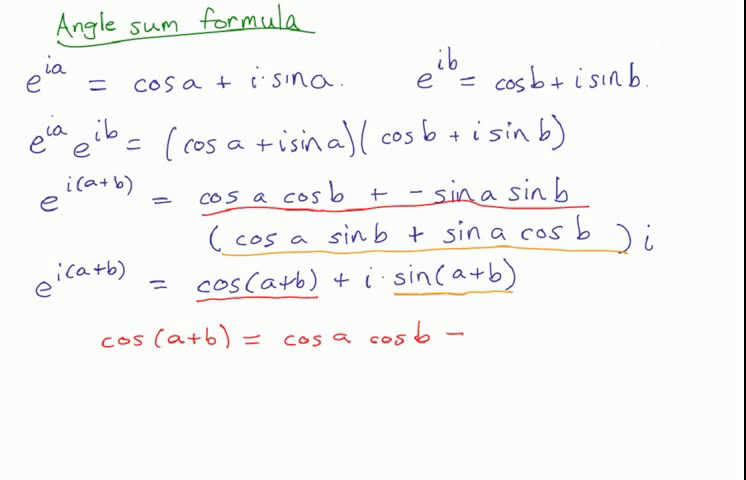 Angle sum formula
e^{ia} = cos a + i · sin a. e^{ib} = cos b + i sin b.
e^{ia} e^{ib} = (cos a + i sin a)(cos b + i sin b)
e^{i(a+b)} = cos a cos b + - sin a sin b
(cos a sin b + sin a cos b) i
e^{i(a+b)} = cos(a+b) + i · sin(a+b)
cos(a+b) = cos a cos b -